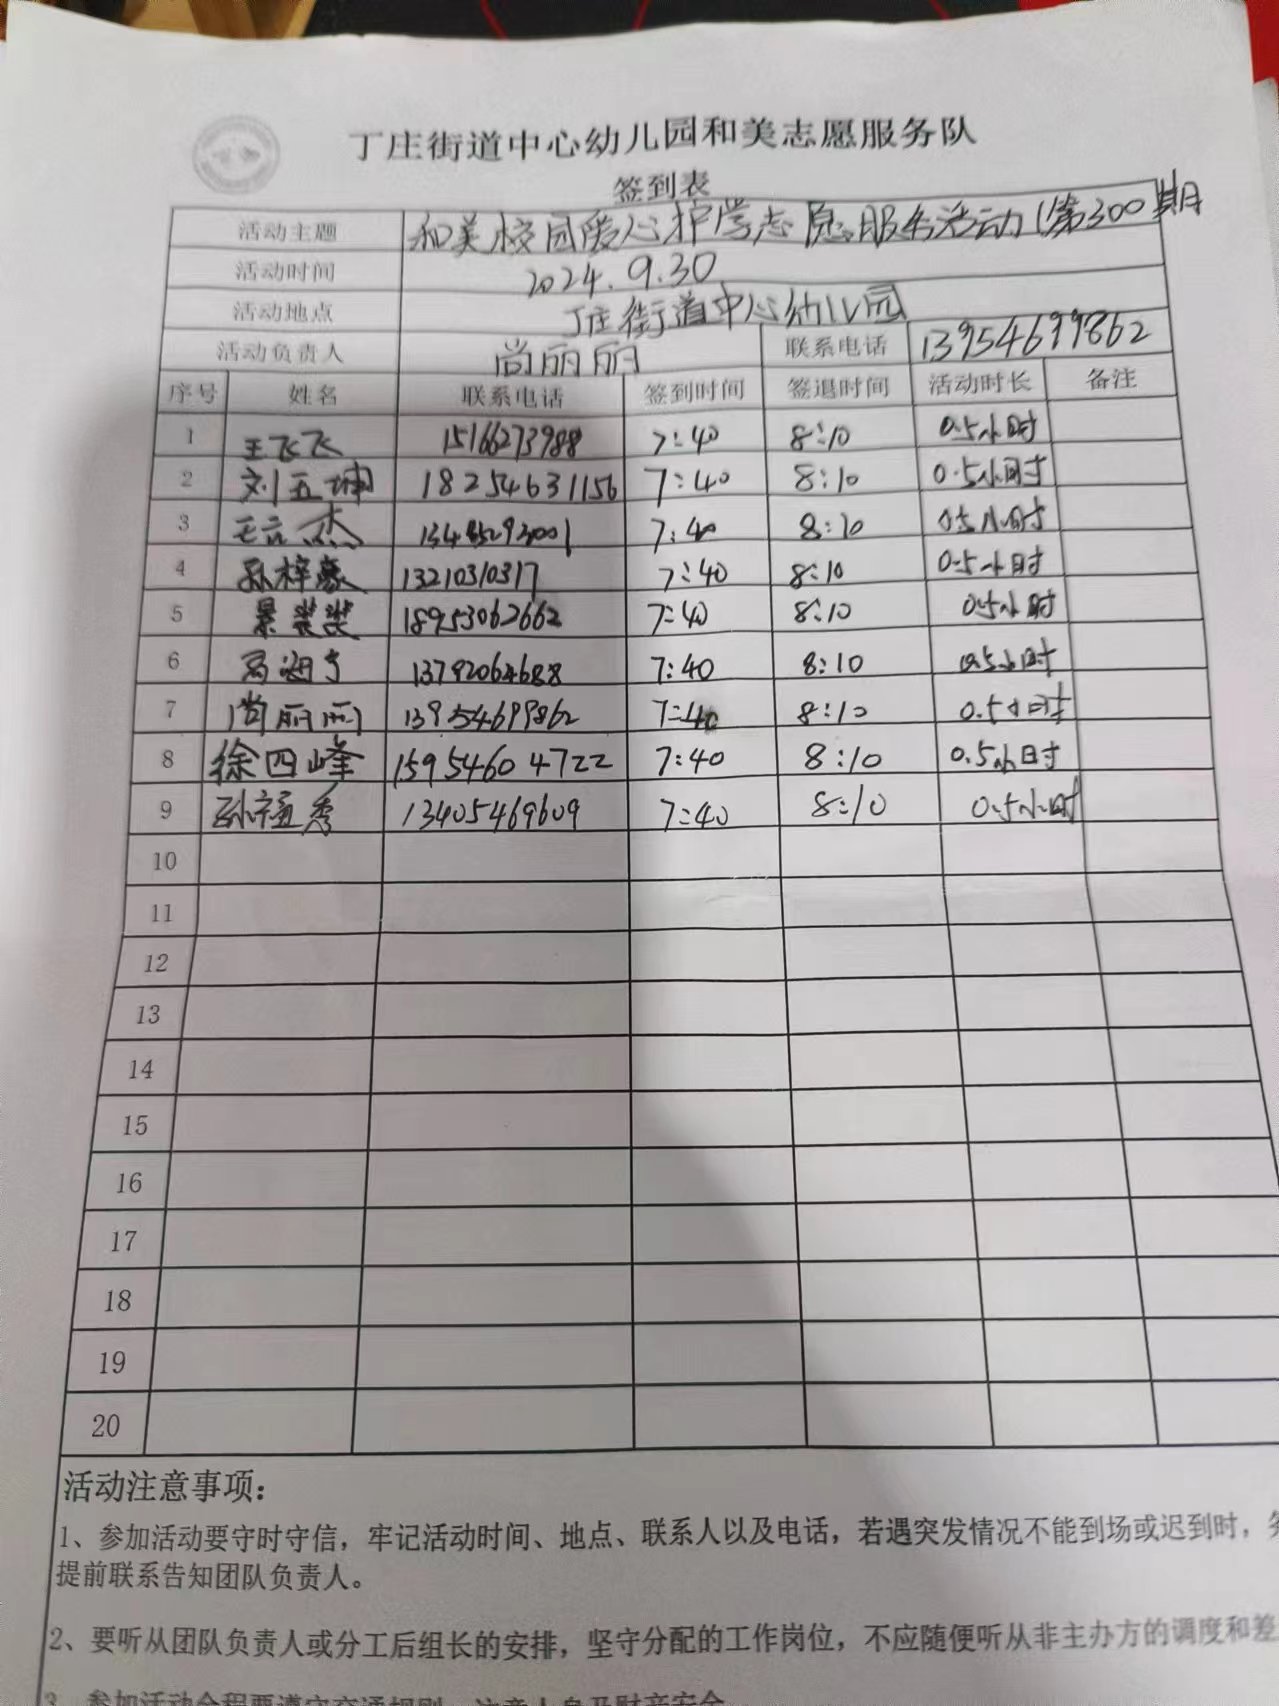 丁庄街道中心幼儿园和美志愿服务队
签到表
活动主题 和美校园爱心护学志愿服务活动(第300期
活动时间 2024.9.30
活动地点 丁庄街道中心幼儿园
活动负责人 尚丽丽 联系电话 13954699862
序号 姓名 联系电话 签到时间 签退时间 活动时长 备注
1 王飞飞 15166273988 7:40 8:10 0.5小时
2 刘五坤 18254631156 7:40 8:10 0.5小时
3 杰 13485293001 7:40 8:10 0.5小时
4 孙梓豪 13210310317 7:40 8:10 0.5小时
5 景裴裴 18953062662 7:40 8:10 0.5小时
6 13792064688 7:40 8:10 0.5小时
7 尚丽丽 13954699862 7:40 8:10 0.5小时
8 徐四峰 15954604722 7:40 8:10 0.5小时
9 孙福秀 13405469609 7:40 8:10 0.5小时
10
11
12
13
14
15
16
17
18
19
20
活动注意事项：
1、参加活动要守时守信，牢记活动时间、地点、联系人以及电话，若遇突发情况不能到场或迟到时，务
提前联系告知团队负责人。
2、要听从团队负责人或分工后组长的安排，坚守分配的工作岗位，不应随便听从非主办方的调度和差
3、参加活动全程要遵守交通规则，注意人身及财产安全